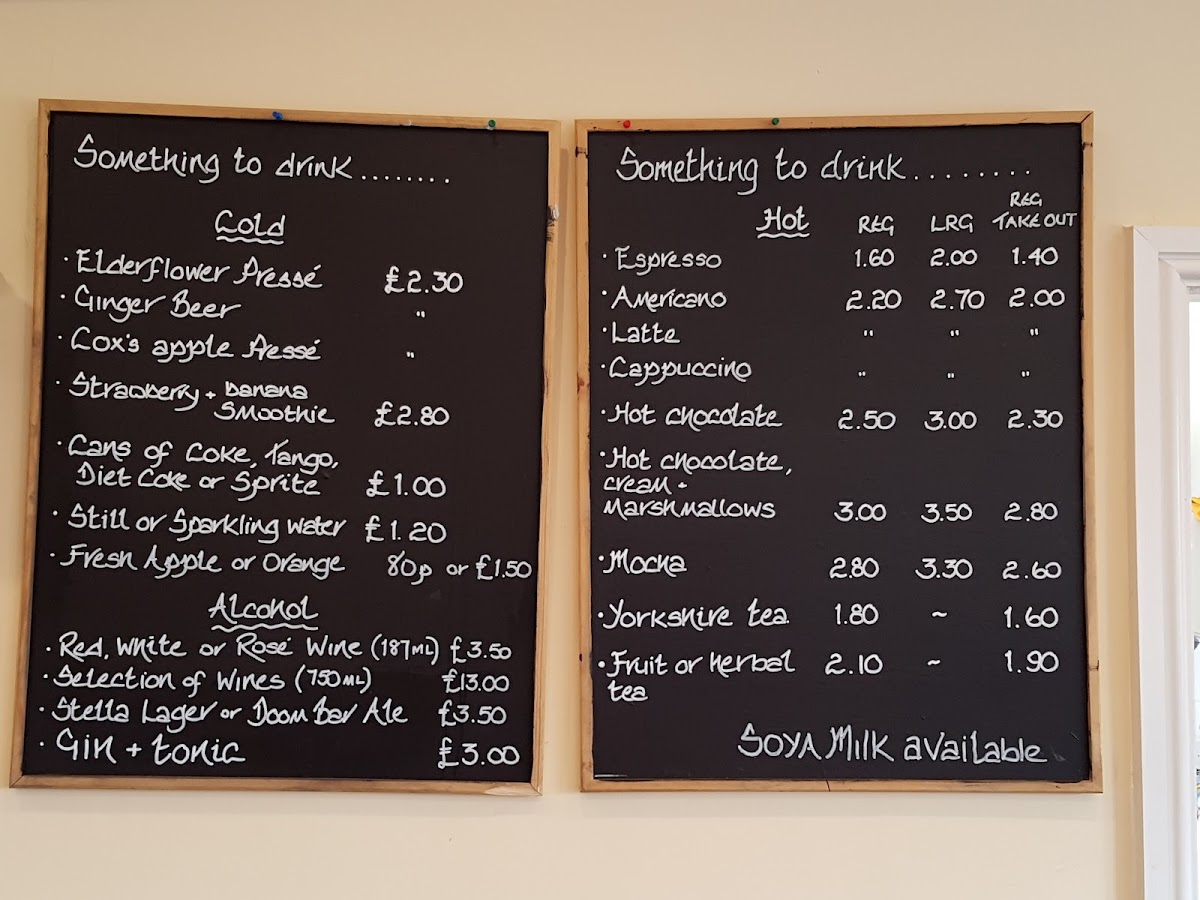 Something to drink........
Cold
· Elderflower Pressé £2.30
· Ginger Beer "
· Cox's apple Pressé "
· Strawberry + banana
Smoothie £2.80
· Cans of Coke, Tango,
Diet Coke or Sprite £1.00
· Still or Sparkling water £1.20
· Fresh Apple or Orange 80p or £1.50
Alcohol
· Red, White or Rosé Wine (187ML) £3.50
· Selection of Wines (750ML) £13.00
· Stella Lager or Doom Bar Ale £3.50
· Gin + tonic £3.00
Something to drink........
Hot REG LRG REG TAKE OUT
· Espresso 1.60 2.00 1.40
· Americano 2.20 2.70 2.00
· Latte " " "
· Cappuccino " " "
· Hot chocolate 2.50 3.00 2.30
· Hot chocolate,
cream +
Marshmallows 3.00 3.50 2.80
· Mocha 2.80 3.30 2.60
· Yorkshire tea 1.80 ~ 1.60
· Fruit or herbal 2.10 ~ 1.90
tea
Soya Milk available